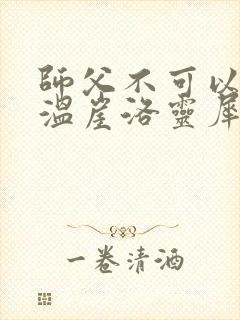 師父不可以
溫崖洛靈犀
一卷清酒